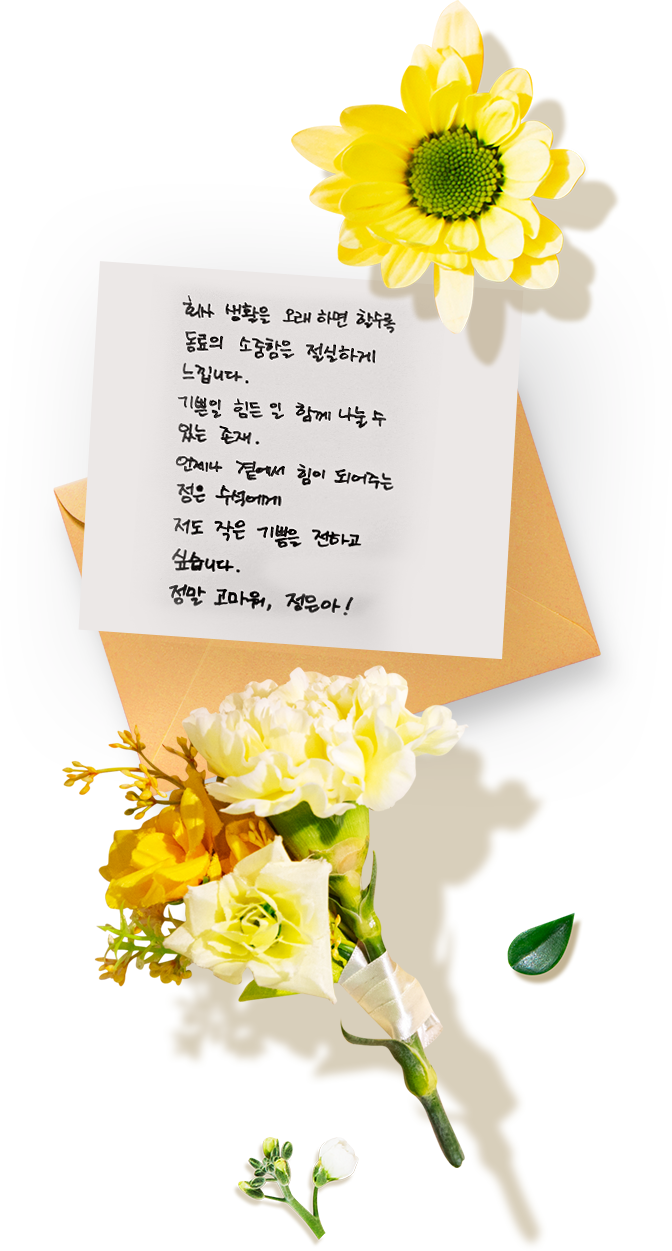 회사 생활은 오래 하면 할수록
동료의 소중함을 절실하게
느낍니다.
기쁜일 힘든 일 함께 나눌 수
있는 존재.
언제나 곁에서 힘이 되어주는
정은 수석에게
저도 작은 기쁨을 전하고
싶습니다.
정말 고마워, 정은아!